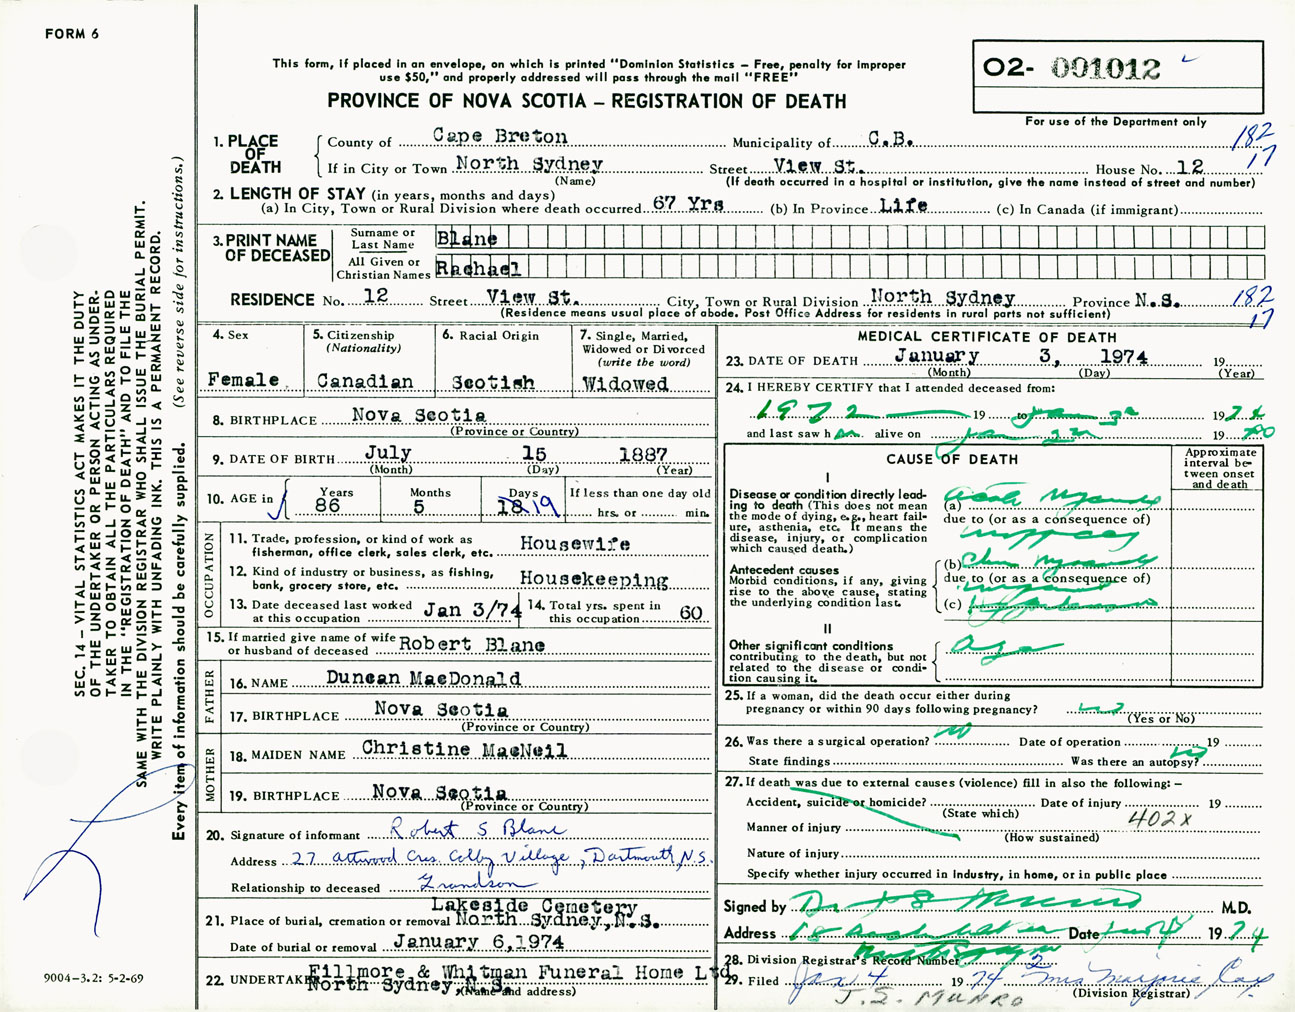 FORM 6
This form, if placed in an envelope, on which is printed "Dominion Statistics – Free, penalty for improper
use $50," and properly addressed will pass through the mail "FREE"
PROVINCE OF NOVA SCOTIA – REGISTRATION OF DEATH
O2- 001012
For use of the Department only
182
17
1. PLACE OF DEATH
County of Cape Breton Municipality of C.B.
If in City or Town North Sydney Street View St. House No. 12
(Name) (If death occurred in a hospital or institution, give the name instead of street and number)
2. LENGTH OF STAY (in years, months and days)
(a) In City, Town or Rural Division where death occurred 67 Yrs (b) In Province Life (c) In Canada (if immigrant)
3. PRINT NAME OF DECEASED
Surname or Last Name Blane
All Given or Christian Names Rachael
RESIDENCE No. 12 Street View St. City, Town or Rural Division North Sydney Province N.S. 182
(Residence means usual place of abode. Post Office Address for residents in rural parts not sufficient) 17
4. Sex
Female
5. Citizenship
(Nationality)
Canadian
6. Racial Origin
Scotish
7. Single, Married,
Widowed or Divorced
(write the word)
Widowed
8. BIRTHPLACE Nova Scotia
(Province or Country)
9. DATE OF BIRTH July 15 1887
(Month) (Day) (Year)
10. AGE in
Years Months Days If less than one day old
86 5 18 19 hrs. or min.
OCCUPATION
11. Trade, profession, or kind of work as
fisherman, office clerk, sales clerk, etc. Housewife
12. Kind of industry or business, as fishing,
bank, grocery store, etc. Housekeeping
13. Date deceased last worked
at this occupation Jan 3/74
14. Total yrs. spent in
this occupation 60
15. If married give name of wife
or husband of deceased Robert Blane
FATHER
16. NAME Duncan MacDonald
17. BIRTHPLACE Nova Scotia
(Province or Country)
MOTHER
18. MAIDEN NAME Christine MacNeil
19. BIRTHPLACE Nova Scotia
(Province or Country)
20. Signature of informant Robert S Blane
Address 27 Attwood Cres. Colby Village, Dartmouth, N.S.
Relationship to deceased Grandson
Lakeside Cemetery
21. Place of burial, cremation or removal North Sydney, N.S.
Date of burial or removal January 6, 1974
22. UNDERTAKER Fillmore & Whitman Funeral Home Ltd.
North Sydney, N.S.
(Name and address)
MEDICAL CERTIFICATE OF DEATH
23. DATE OF DEATH January 3, 1974 19
(Month) (Day) (Year)
24. I HEREBY CERTIFY that I attended deceased from:
1972 19 to Jan 3rd 1974
and last saw h alive on Jan 2 19
CAUSE OF DEATH
Approximate
interval be-
tween onset
and death
I
Disease or condition directly lead-
ing to death (This does not mean
the mode of dying, e.g., heart fail-
ure, asthenia, etc. It means the
disease, injury, or complication
which caused death.)
(a) Acute
due to (or as a consequence of)
Antecedent causes
Morbid conditions, if any, giving
rise to the above cause, stating
the underlying condition last.
(b)
due to (or as a consequence of)
(c)
II
Other significant conditions
contributing to the death, but not
related to the disease or condi-
tion causing it.
Age
25. If a woman, did the death occur either during
pregnancy or within 90 days following pregnancy? no
(Yes or No)
26. Was there a surgical operation? no Date of operation 19
State findings Was there an autopsy? no
27. If death was due to external causes (violence) fill in also the following: –
Accident, suicide or homicide? Date of injury 19
(State which) 402x
Manner of injury
(How sustained)
Nature of injury
Specify whether injury occurred in Industry, in home, or in public place
Signed by Dr J S Munro M.D.
Address Date Jan 4 1974
North Sydney
28. Division Registrar's Record Number 2
29. Filed Jan 4 1974 Mrs Marjorie
(Division Registrar)
J. S. MUNRO
SEC. 14 – VITAL STATISTICS ACT MAKES IT THE DUTY
OF THE UNDERTAKER OR PERSON ACTING AS UNDER-
TAKER TO OBTAIN ALL THE PARTICULARS REQUIRED
IN THE "REGISTRATION OF DEATH" AND TO FILE THE
SAME WITH THE DIVISION REGISTRAR WHO SHALL ISSUE THE BURIAL PERMIT.
WRITE PLAINLY WITH UNFADING INK. THIS IS A PERMANENT RECORD.
Every item of information should be carefully supplied. (See reverse side for instructions.)
9004–3.2: 5-2-69